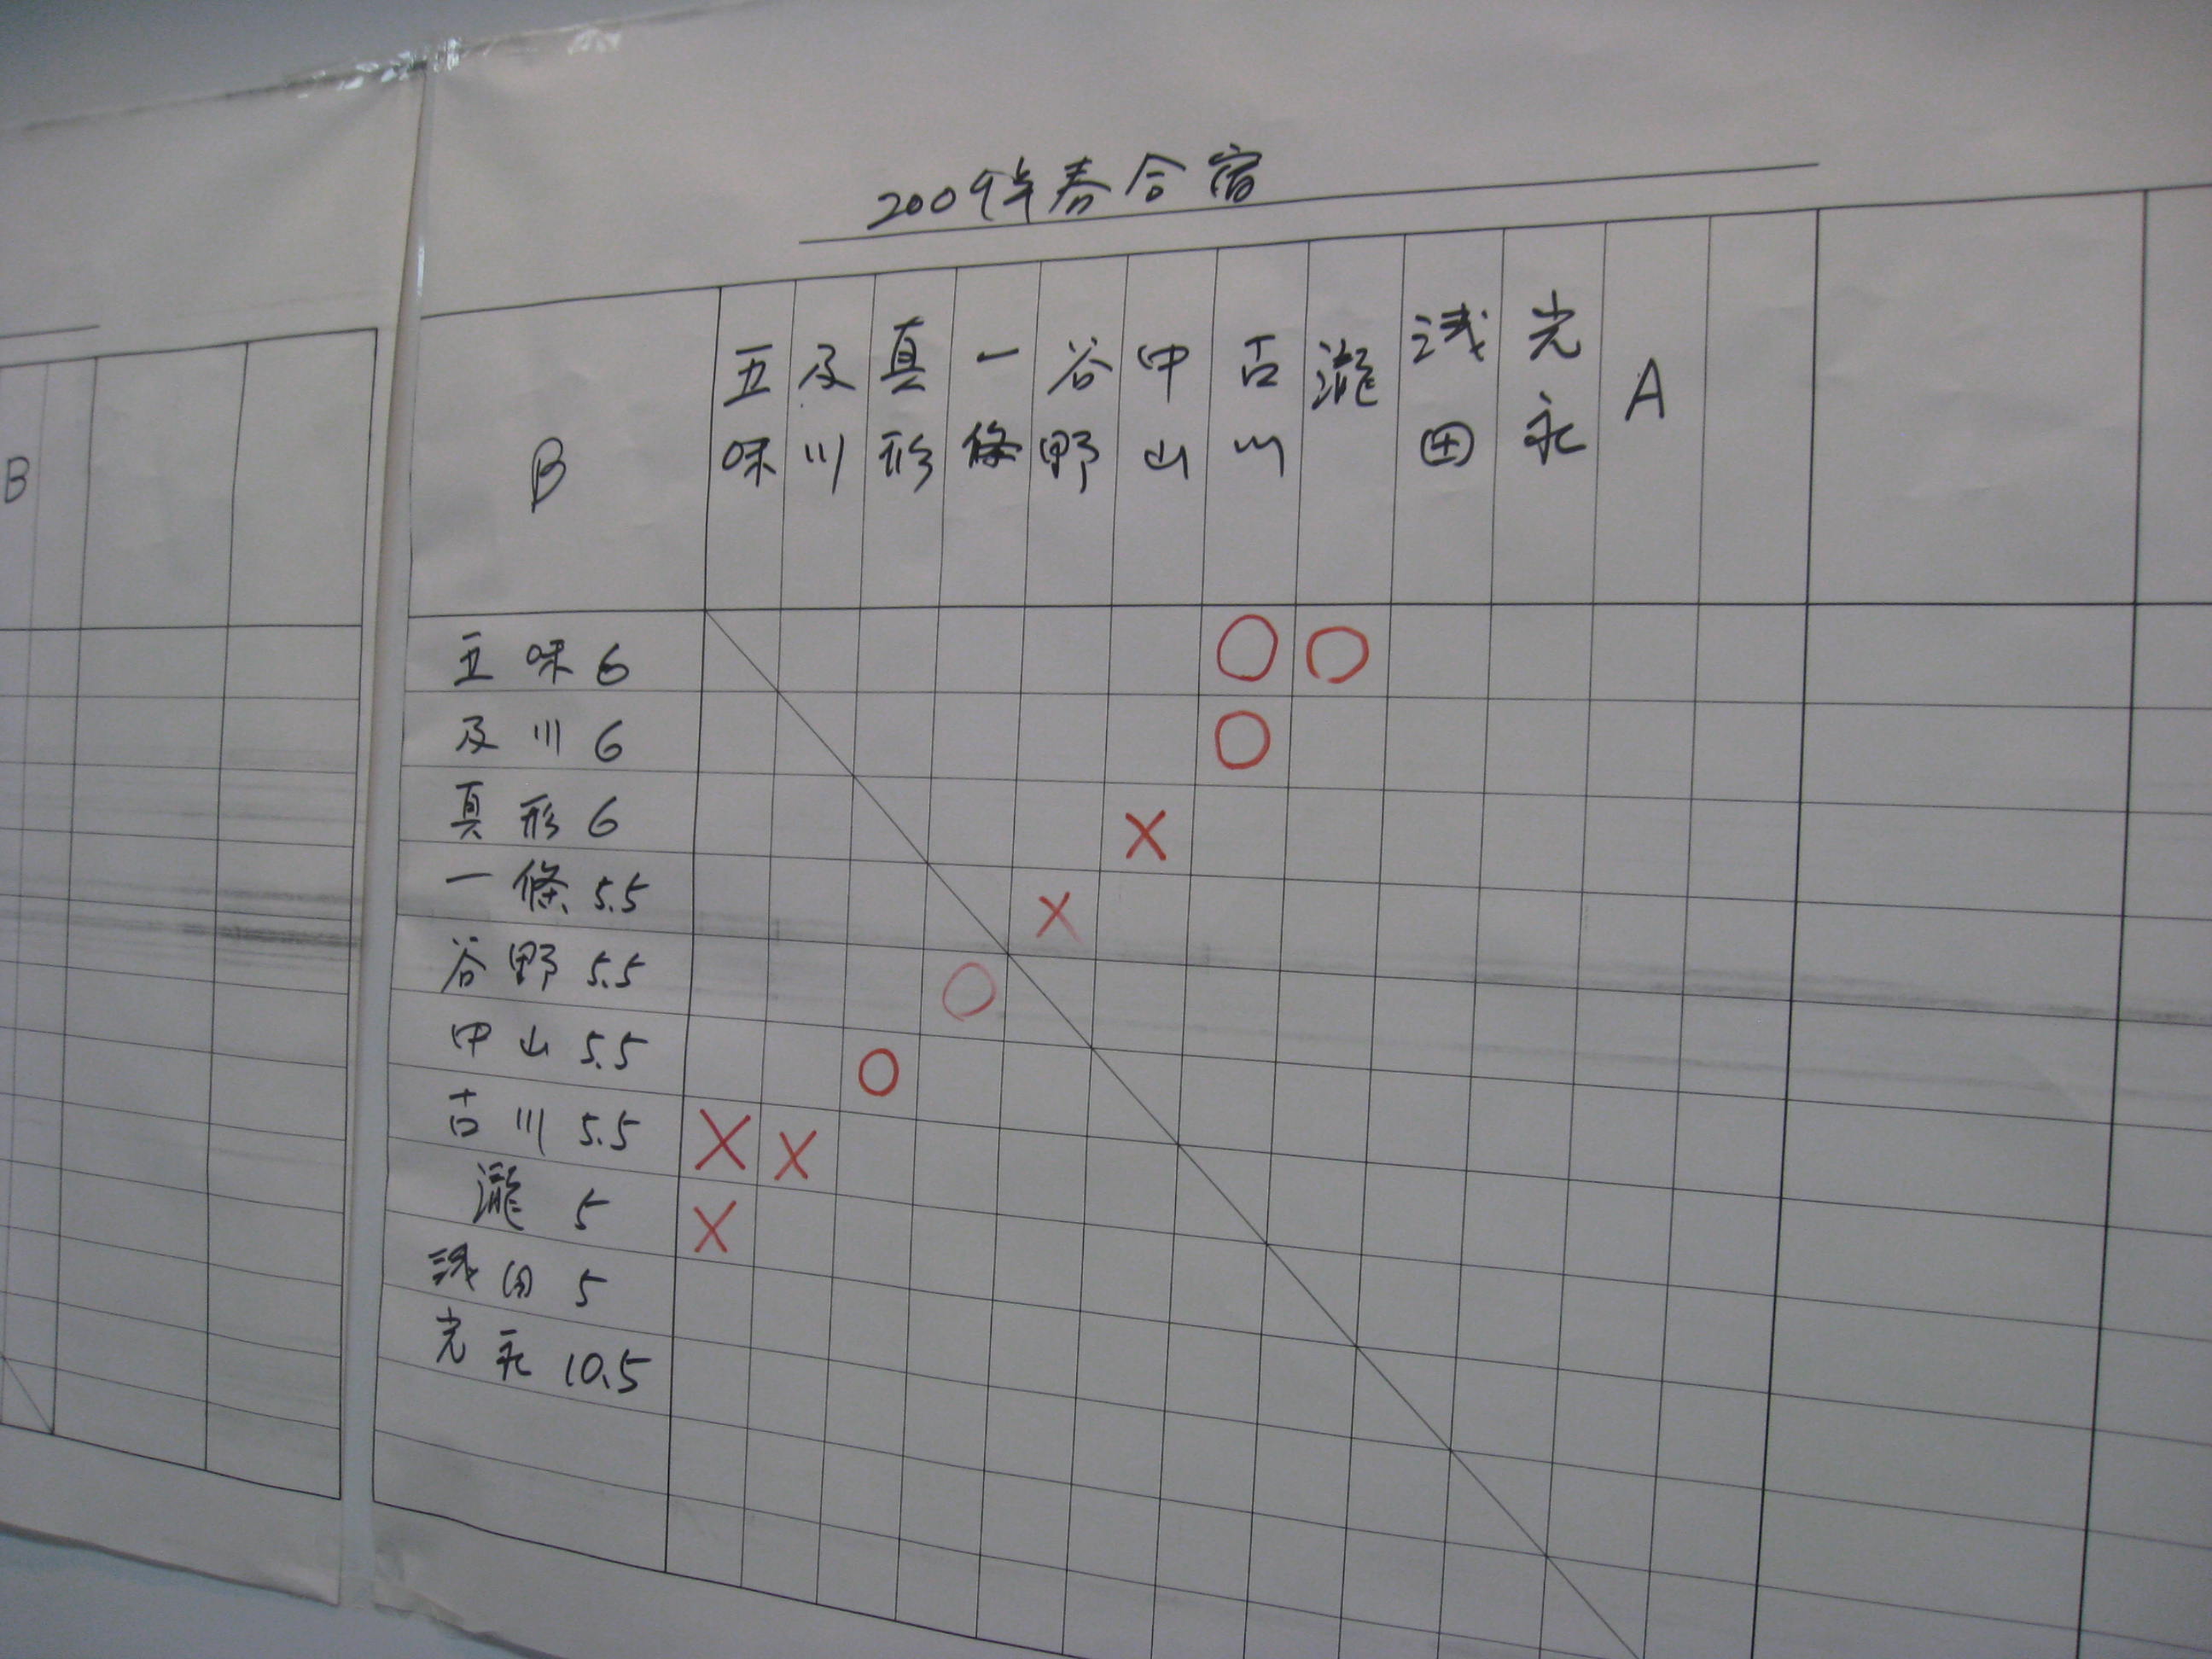 2009年春合宿
B
B
五味
及川
真形
一條
谷野
中山
古川
瀧
浅田
光永
A
五味 6 ○ ○
及川 6 ○
真形 6 ×
一條 5.5 ×
谷野 5.5 ○
中山 5.5 ○
古川 5.5 × ×
瀧 5 ×
浅田 5
光永 10.5